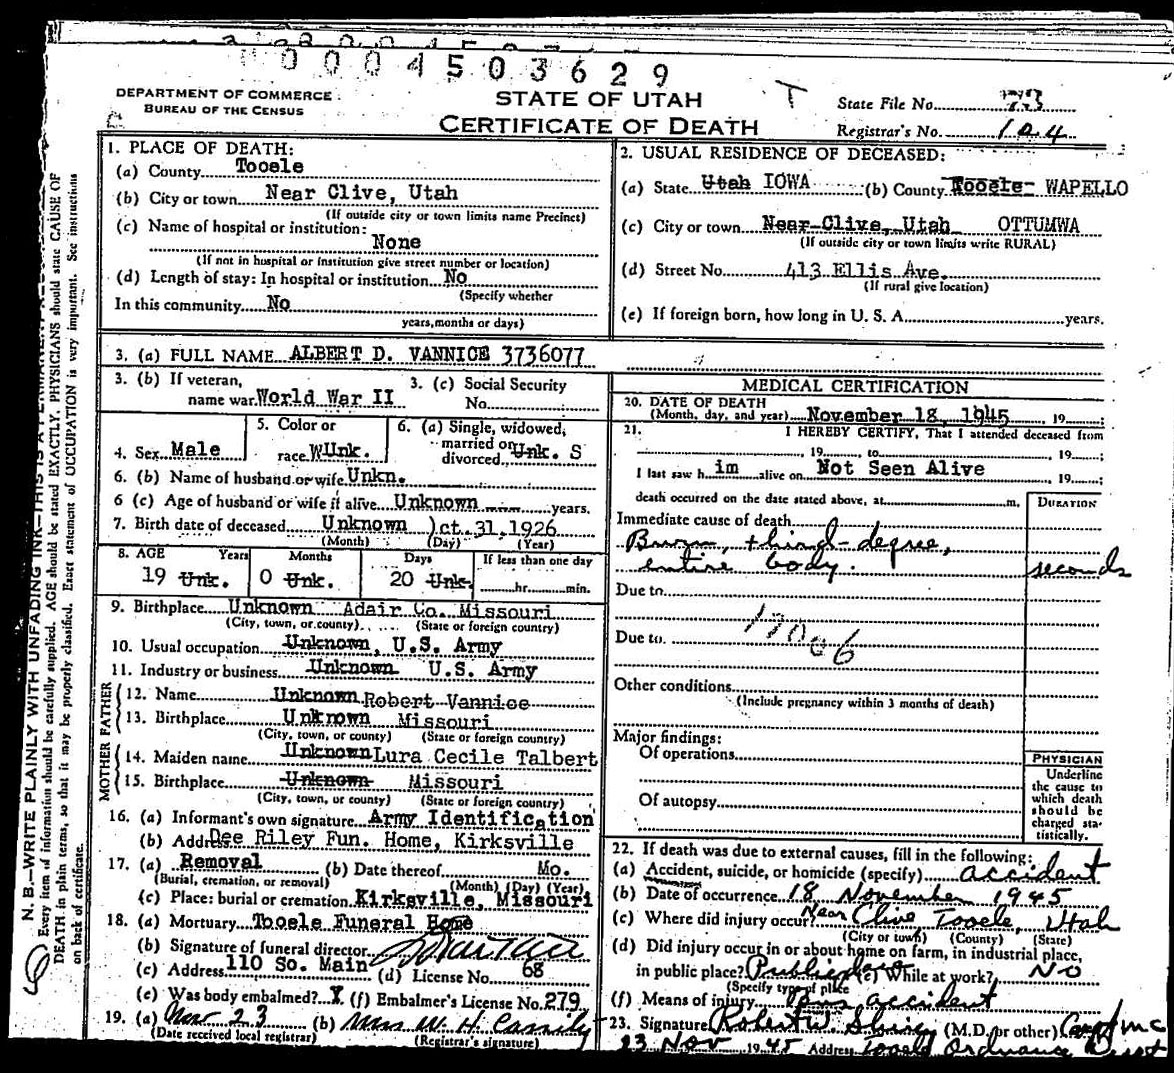 0004503629
DEPARTMENT OF COMMERCE
BUREAU OF THE CENSUS
STATE OF UTAH
CERTIFICATE OF DEATH
T
State File No. 73
Registrar's No. 104
1. PLACE OF DEATH:
(a) County Tooele
(b) City or town Near Clive, Utah
(If outside city or town limits name Precinct)
(c) Name of hospital or institution:
None
(If not in hospital or institution give street number or location)
(d) Length of stay: In hospital or institution No
(Specify whether
In this community No
years, months or days)
2. USUAL RESIDENCE OF DECEASED:
(a) State Utah IOWA (b) County Tooele WAPELLO
(c) City or town Near Clive, Utah OTTUMWA
(If outside city or town limits write RURAL)
(d) Street No. 413 Ellis Ave.
(If rural give location)
(e) If foreign born, how long in U. S. A. years.
3. (a) FULL NAME ALBERT D. VANNICE 3736077
3. (b) If veteran,
name war. World War II
3. (c) Social Security
No.
4. Sex Male
5. Color or
race. WUnk.
6. (a) Single, widowed,
married or
divorced. Unk. S
6. (b) Name of husband or wife Unkn.
6 (c) Age of husband or wife if alive Unknown years.
7. Birth date of deceased Unknown )ct. 31, 1926
(Month) (Day) (Year)
8. AGE Years Months Days If less than one day
19 Unk. 0 Unk. 20 Unk. hr. min.
9. Birthplace Unknown Adair Co. Missouri
(City, town, or county) (State or foreign country)
10. Usual occupation Unknown, U.S. Army
11. Industry or business Unknown U.S. Army
FATHER
12. Name Unknown Robert Vannice
13. Birthplace Unknown Missouri
(City, town, or county) (State or foreign country)
MOTHER
14. Maiden name Unknown Lura Cecile Talbert
15. Birthplace Unknown Missouri
(City, town, or county) (State or foreign country)
16. (a) Informant's own signature Army Identification
(b) Addr Dee Riley Fun. Home, Kirksville
17. (a) Removal (b) Date thereof Mo.
(Burial, cremation, or removal) (Month) (Day) (Year)
(c) Place: burial or cremation Kirksville, Missouri
18. (a) Mortuary Tooele Funeral Home
(b) Signature of funeral director
(c) Address 110 So. Main (d) License No. 68
(e) Was body embalmed? Y (f) Embalmer's License No. 279
19. (a) Nov 23 (b) Mrs W. H. Cassity
(Date received local registrar) (Registrar's signature)
MEDICAL CERTIFICATION
20. DATE OF DEATH
(Month, day, and year) November 18, 1945 19 ;
21. I HEREBY CERTIFY, That I attended deceased from
19 , to 19 ;
I last saw h im alive on Not Seen Alive 19 ;
death occurred on the date stated above, at m.
DURATION
Immediate cause of death
Burn, third-degree,
entire body. seconds
Due to
Due to
17006
Other conditions
(Include pregnancy within 3 months of death)
Major findings:
Of operations
Of autopsy
PHYSICIAN
Underline
the cause to
which death
should be
charged sta-
tistically.
22. If death was due to external causes, fill in the following:
(a) Accident, suicide, or homicide (specify) accident
(b) Date of occurrence 18 November 1945
(c) Where did injury occur Near Clive Tooele, Utah
(City or town) (County) (State)
(d) Did injury occur in or about home on farm, in industrial place,
in public place? Public place (e) While at work? No
(Specify type of place
(f) Means of injury accident
23. Signature Robert W. (M.D. or other) Capt MC
23 Nov 1945 Address Tooele Ordnance Depot
N. B.—WRITE PLAINLY WITH UNFADING INK—THIS IS A PERMANENT
Every item of information should be carefully supplied. AGE should be stated EXACTLY. PHYSICIANS should state CAUSE OF
DEATH in plain terms, so that it may be properly classified. Exact statement of OCCUPATION is very important. See instructions
on back of certificate.